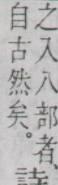 之入八部者、
自古然矣。詩